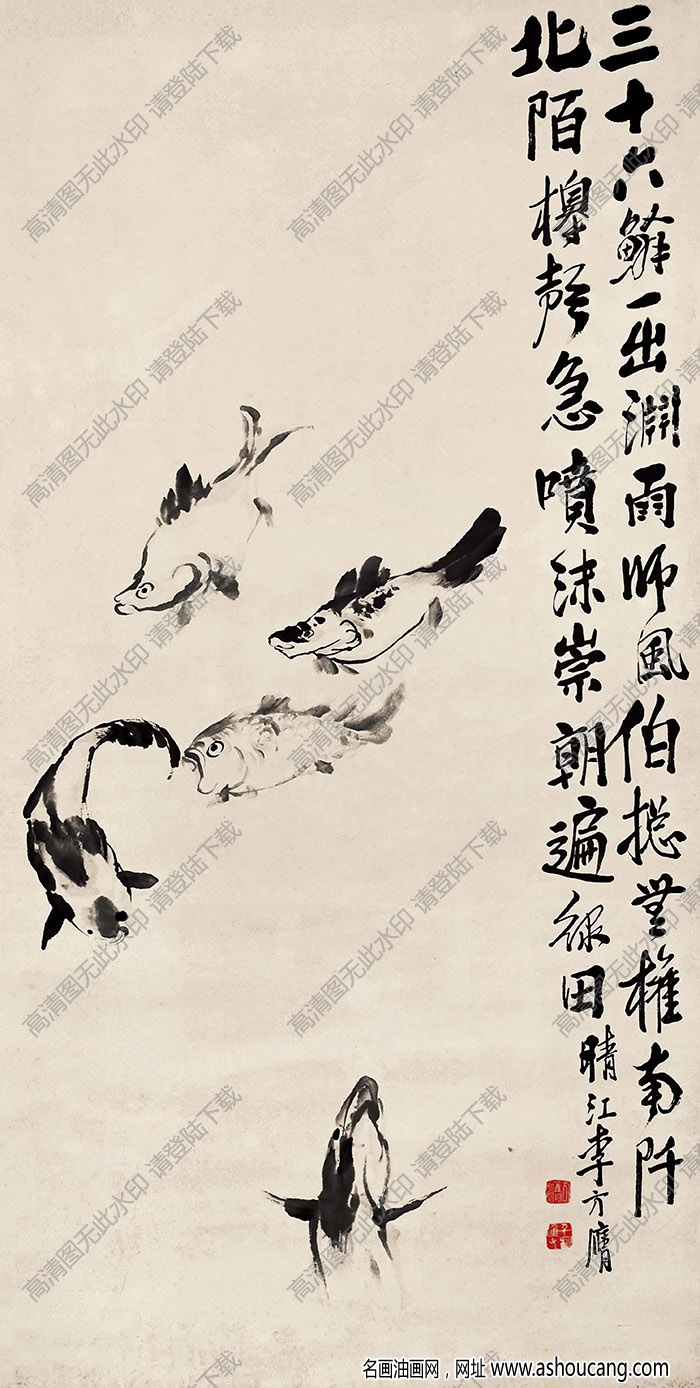 三十六鱗一出淵雨師風伯摠無權南阡
北陌槔聲急噴沫崇朝遍綠田
晴江李方膺
高清图无此水印 请登陆下载
名画油画网，网址 www.ashoucang.com